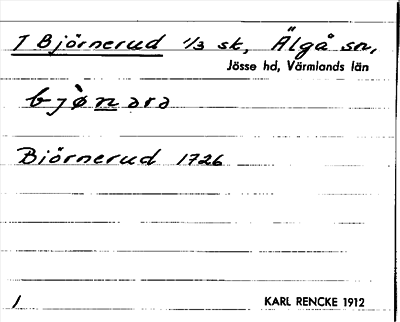 T Björnerud 1/3 sk, Älgå sn,
Jösse hd, Värmlands län
bjø̀nərə
Biörnerud 1726
1 KARL RENCKE 1912